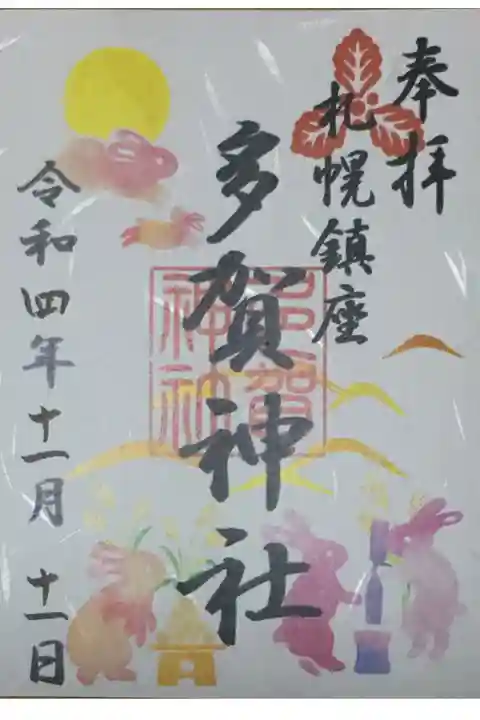 奉拝
札幌鎮座
多賀神社
多賀神社
令和四年十一月十一日